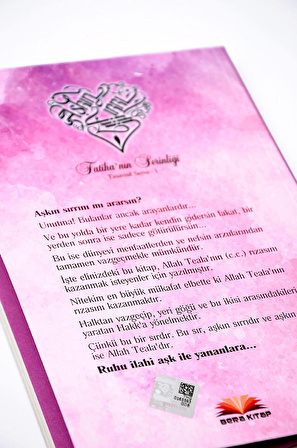 Fatiha'nın Serinliği
Tasavvuf Serisi - 1
Aşkın sırrını mı ararsın?
Unutma! Bulanlar ancak arayanlardır...
Ve bu yolda bir yere kadar kendin gidersin fakat, bir
yerden sonra ise sadece götürülürsün...
Bu ise dünyevi menfaatlerden ve nefsin arzularından
tamamen vazgeçmekle mümkündür.
İşte elinizdeki bu kitap, Allah Teala'nın (c.c.) rızasını
kazanmak isteyenler için yazılmıştır.
Nitekim en büyük mükafat elbette ki Allah Teala'nın
rızasını kazanmaktır.
Halktan vazgeçip, yeri göğü ve bu ikisi arasındakileri
yaratan Hakk'a yönelmektir.
Çünkü bu bir sırdır. Bu sır, aşkın sırrıdır ve aşkın
ise Allah Teala'dır.
Ruhu ilahi aşk ile yananlara...
BERA KİTAP